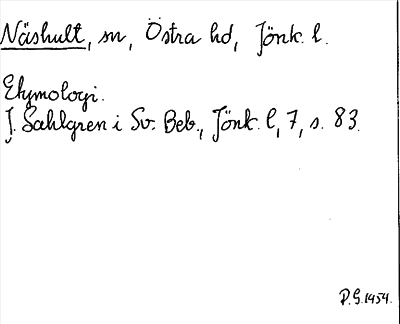 Näshult, sn, Östra hd, Jönk. l.
Etymologi.
J. Sahlgren i Sv. Beb., Jönk. l, 7, s. 83.
P.G. 1954.